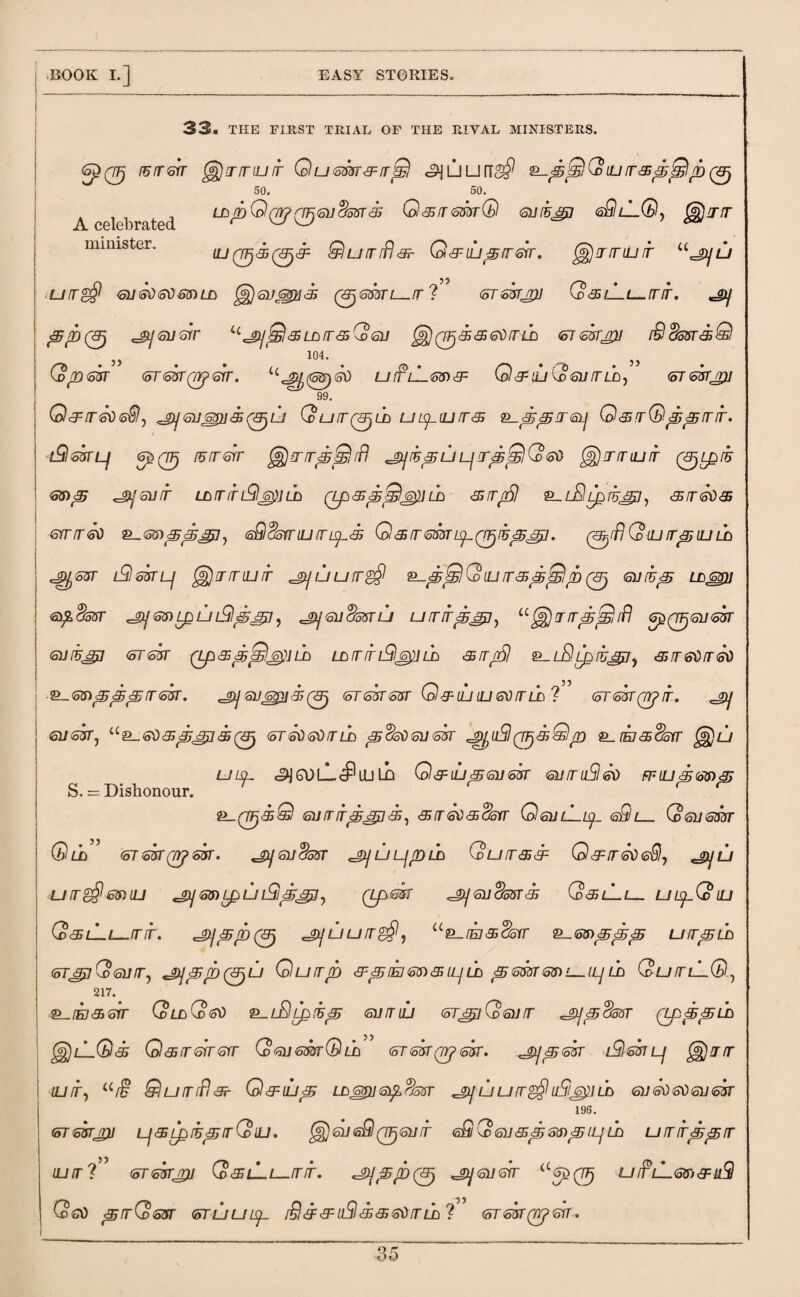 BOOK I.] EASY STORIES.
33. THE FIRST TRIAL OF THE RIVAL MINISTERS.
ஒரு நாள் இராயர் பெண்சாதி அப்பாஜி உத்தியோகத்திற்கு
50. 50.
மற்றொருவனைக் கொண்டு வந்து விட்டு, இரா
A celebrated minister.
யருக்குச் சிபாரிசு செய்தாள். இராயர் “அப்
பாஜி வல்லமை இவனுக்குண்டா?” என்று கேட்டார். அ
தற்கு அவள் “அதிகமாகவே இருக்கலாம் என்று நினைக்கி
104.
றேன்” என்றாள். “ஆனால் பரீட்சை செய்வோம்,” என்று
99.
சொல்லி, அவனுக்குப் போகும் படியாக உத்தரவு கொடுத்தார்.
பின்பு ஒரு நாள் இராத்திரி அந்தப்புரத்திலே இராயர் குழந்
தை அவர் மார்பிலும் முகத்திலும் காறி உமிழ்ந்து, கால்க
ளால் உதைத்து, விளையாடிக் கொண்டிருந்தது. சூரியோதயம்
ஆன பின்பு இராயர் அப்பாஜி உத்தியோகத்திற்கு வந்த மனு
ஷனை அழைப்பித்து, அவனைப் பார்த்து, “இராத்திரி ஒருவன்
வந்து என் முகத்திலும் மார்பிலும் காறி உமிழ்ந்து, காலால்
உதைத்தான். அவனுக்கு என்ன செய்யலாம்?” என்றார். அ
வன், “உலகத்துக்கு எல்லாம் தலைவன் ஆயிருக்கிற உங்களை இப்
படி அலட்சியம் செய்தவன் வாயில் ஈயத்தை
S. = Dishonour.
உருக்கி வார்த்து, கால்களை வெட்டி விட வேண்
டும்” என்றான். அவனை அப்புறம் போகச் சொல்லி, அப்
பாஜியை அழைப்பித்து, முன் அவனைக் கேட்ட படியே
கேட்டார். அதற்கு அப்பாஜி, “உங்களை உதைத்த பாதம்
எதுவோ, அதற்குப் பொற் சதங்கையும் தண்டையும் போட்டு,
217.
உங்கள் மேல் உமிழ்ந்த வாய் எதுவோ அதனை முத்தம்
இட்டுக் கொள்ள வேண்டும்” என்றான். அதன் பின்பு இரா
யர், “நீ சிபாரிசு செய்த மனுஷனை அப்பாஜியிலும் வல்லவன்
196.
என்று புகழ்ந்தாயே. இவ்விருவர் விவேகத்தையும் பார்த்தா
யா?” என்று கேட்டார். அதற்கு அவள் “ஒரு பரீட்சையி
லே தானே எப்படி நிச்சயிக்கலாம்?” என்றாள்.
35